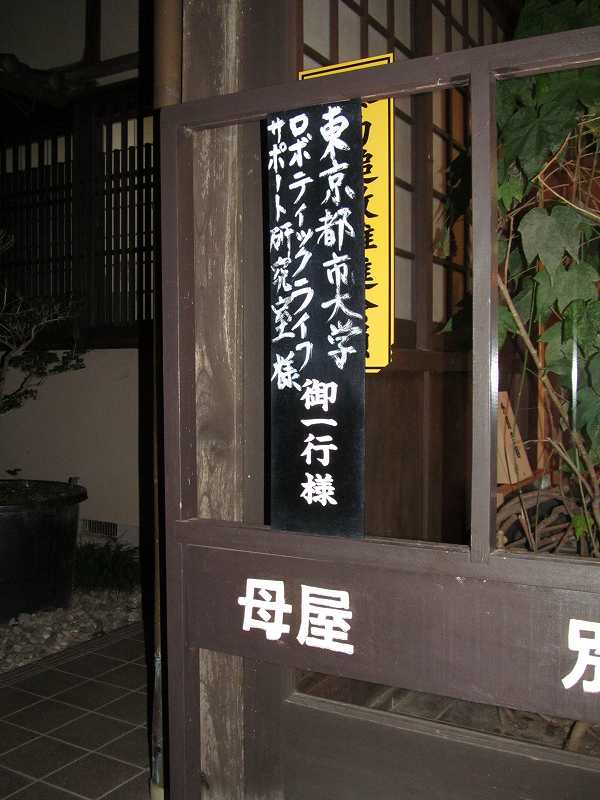 東京都市大学
ロボティックライフ
サポート研究室様
御一行様
母屋
別